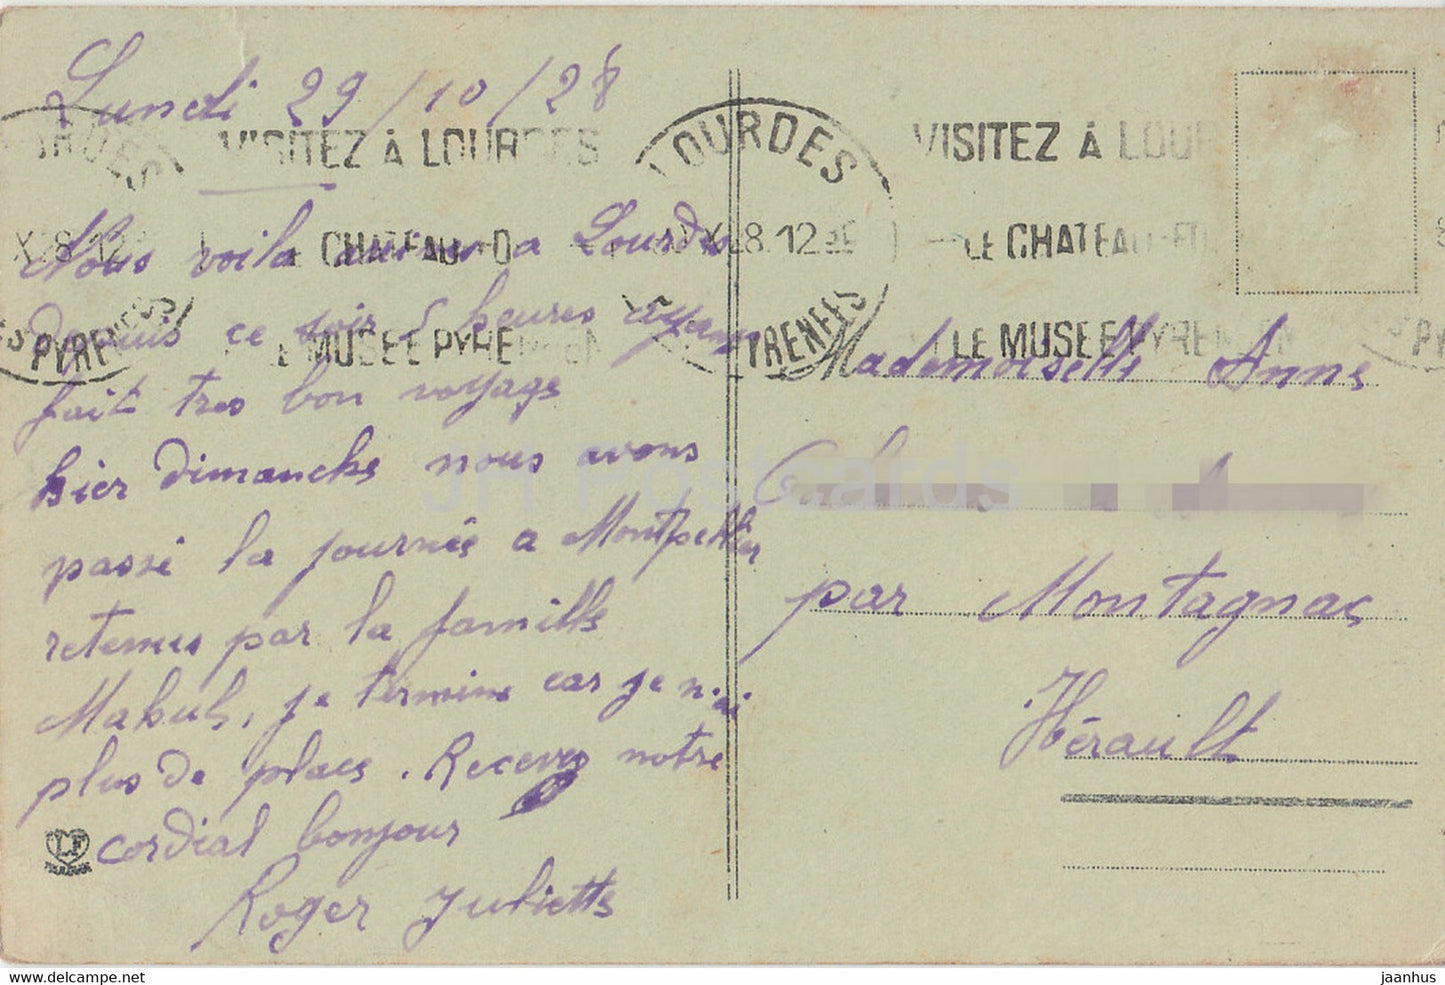 Lundi 29/10/28
VISITEZ À LOURDES
LOURDES
VISITEZ À LOUR
Nous voila a Lourdes
X 28.12
LE CHATEAU-FO
X 28.12
LE CHATEAU-FO
depuis ce soir 5 heures ayant
LE MUSEE PYRE
PYRENEES
LE MUSEE PYRENEEN
PYRENEES
fait tres bon voyage
hier dimanche nous avons
passé la journée a Montpellier
retenus par la famille
Makuh, je termine car je n'ai
plus de place. Recevez notre
cordial bonjour
Roger Juliette
LF
Mademoiselle Anne
par Montagnac
Hérault
JH Postcards
www.delcampe.net
jaanhus